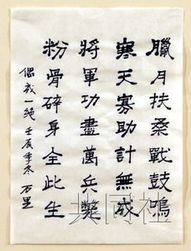 臘月扶桑戰鼓鳴
寒天寡助計無成
將軍功盡萬兵斃
粉骨碎身全此生
偶成一絕 壬辰季冬 石星